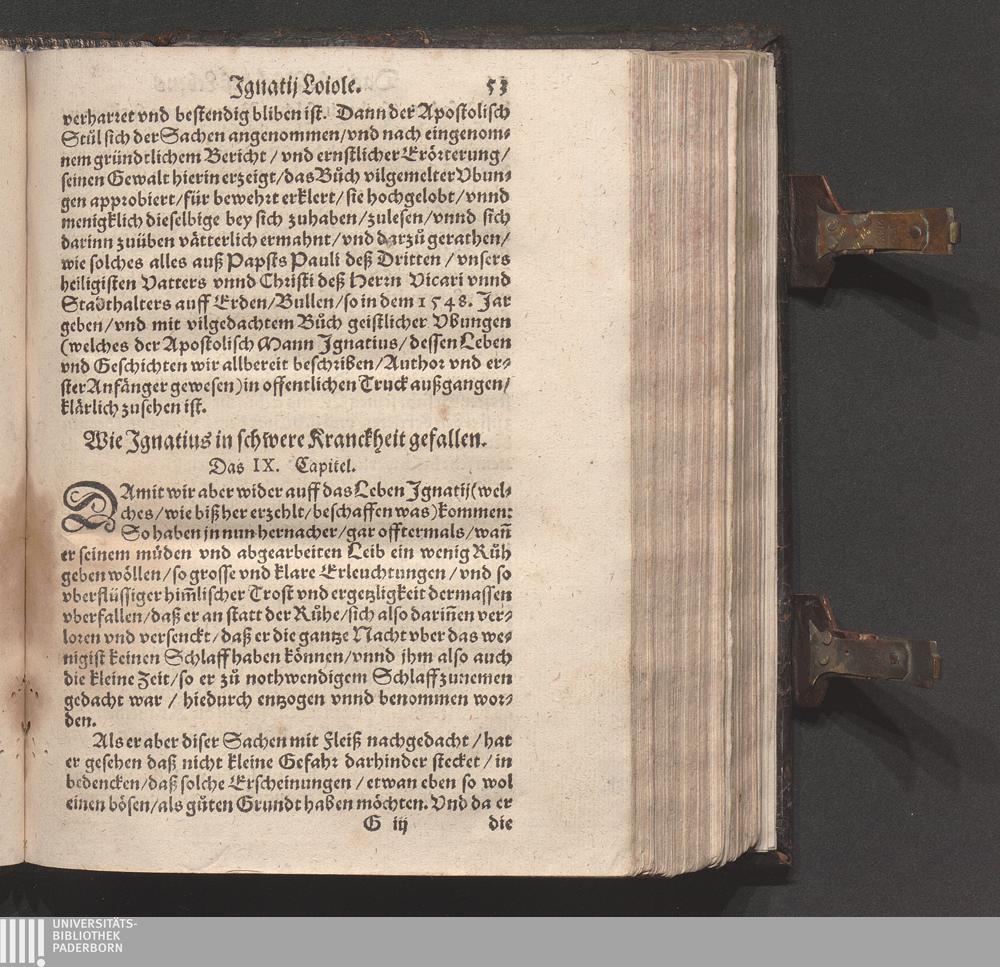 Ignatij Loiole. 53
verharret vnd bestendig bliben ist. Dann der Apostolisch
Stůl sich der Sachen angenommen/vnd nach eingenom⸗
nem gründtlichem Bericht / vnd ernstlicher Erörterung/
seinen Gewalt hierin erzeigt/das Bůch vilgemelter Vbun⸗
gen approbiert/für bewehrt erklert/sie hochgelobt/vnnd
menigklich dieselbige bey sich zuhaben/zulesen/vnnd sich
darinn zuüben vätterlich ermahnt/vnd darzů gerathen/
wie solches alles auß Papsts Pauli deß Dritten / vnsers
heiligisten Vatters vnnd Christi deß Herrn Vicari vnnd
Stadthalters auff Erden/Bullen/so in dem 1548. Jar
geben/vnd mit vilgedachtem Bůch geistlicher Vbungen
(welches der Apostolisch Mann Ignatius/dessen Leben
vnd Geschichten wir allbereit beschriben/Author vnd er⸗
ster Anfänger gewesen) in offentlichen Truck außgangen/
klärlich zusehen ist.
Wie Ignatius in schwere Kranckheit gefallen.
Das IX. Capitel.
DAmit wir aber wider auff das Leben Ignatij (wel⸗
ches/wie bißher erzehlt/beschaffen was) kommen:
So haben jn nun hernacher/gar offtermals/wañ
er seinem müden vnd abgearbeiten Leib ein wenig Růh
geben wöllen/so grosse vnd klare Erleuchtungen/vnd so
vberflüssiger him̃lischer Trost vnd ergetzligkeit dermassen
vberfallen/daß er an statt der Růhe/sich also dariñen ver⸗
loren vnd versenckt/daß er die gantze Nacht vber das we⸗
nigist keinen Schlaff haben können/vnnd jhm also auch
die kleine Zeit/so er zů nothwendigem Schlaff zunemen
gedacht war / hiedurch entzogen vnnd benommen wor⸗
den.
Als er aber diser Sachen mit Fleiß nachgedacht/hat
er gesehen daß nicht kleine Gefahr darhinder stecket/in
bedencken/daß solche Erscheinungen/etwan eben so wol
einen bösen/als gůten Grundt haben möchten. Vnd da er
G iij die
UNIVERSITÄTS-
BIBLIOTHEK
PADERBORN